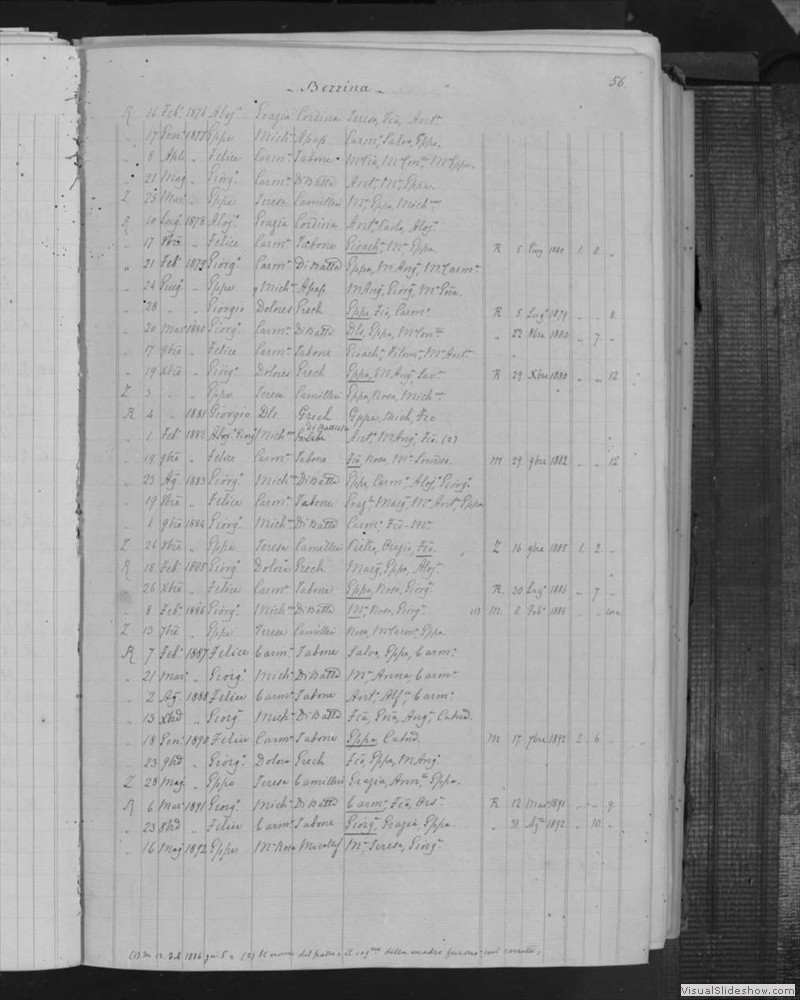 Bezzina
56.
R 16 Feb. 1876 Aloj. Grazia Cordina Teresa, Fca, Ant.
" 17 Gen. 1877 Eppe Mich. Apap Carm, Salva, Eppa.
" 8 Apl. " Felice Carm. Tabone
" 21 Mag " Giorg. Carm. DiBatta Ant. M. Eppa.
Z 25 Mar. " Eppe Teresa Camilleri M. Eppa, Mich.
R 10 Lug. 1878 Aloj. Grazia Cordina Ant. Carla, Aloj.
" 17 8bre " Felice Carm. Tabone Gioach. M. Eppa. R 5 1880 1. 8. "
" 21 Feb. 1879 Giorg. Carm. DiBatta Eppa, M Ang, M Carm.
" 24 Giug. " Eppe Mich. Apap M Ang, Giorg,
" 28 " " Giorgio Dolores Grech Eppe, Fca, Carm. R 5 Lug. 1879 " " 8.
" 20 Mar. 1880 Giorg. Carm. DiBatta Dls, Eppa, M Con. " 22 8bre 1880 " 7 "
" 17 9bre " Felice Carm. Tabone Gioach. Filom, M. Ant.
" 19 Xbre " Giorg. Dolores Grech Eppa, M Ang, Sav. R 29 Xbre 1880 " " 12
Z 3 " " Eppe Teresa Camilleri Eppa, Rosa, Mich.
R 4 " 1881 Giorgio Dls. Grech Eppa, Mich, Fco
DiBattista
" 1 Feb. 1882 Aloj. Giorg. Mich. Ant. M Ang, Fca. (2)
" 19 9bre " Felice Carm. Tabone Fca, Rosa, M. Lourdes. M 29 9bre 1882 " " 12
" 23 Ag. 1883 Giorg. Mich. DiBatta Eppa, Carm. Aloj. Giorg.
" 19 8bre " Felice Carm. Tabone M. Ant, Eppa
" 1 9bre 1884 Giorg. Mich. DiBatta Carm. Fca. M.
Z 26 8bre " Eppe Teresa Camilleri Pietro, Orazio, Fca. Z 16 9bre 1885 1. 2. "
R 18 Feb. 1885 Giorg. Dolora Grech Marg, Eppa, Aloj.
" 26 Xbre " Felice Carm. Tabone Eppa, Rosa, Giorg. R. 30 Lug. 1886 " 7 "
" 8 Feb. 1886 Giorg. Mich. DiBatta M, Rosa, Giorg. (1) M 8 Feb. 1886 " "
Z 13 7bre " Eppe Teresa Camilleri Rosa, M Carm, Eppa.
R 7 Feb. 1887 Felice Carm. Tabone Salva, Eppa, Carm.
" 21 Mar. " Giorg. Mich. DiBatta M. Anna, Carm.
" 2 Ag. 1888 Felice Carm. Tabone Ant. Alf, Carm.
" 13 Xbre " Giorg. Mich. DiBatta Fca, Ang, Catna.
" 18 Gen. 1890 Felice Carm. Tabone Eppa, Catna. M 17 7bre 1892 2 6 "
" 23 9bre " Giorg. Dolora Grech Fca, Eppa, M Ang.
Z 28 Mag " Eppe Teresa Camilleri Grazia, Ann. Eppa.
R 6 Mar. 1891 Giorg. Mich. DiBatta Carm, Fca, R 12 Mar. 1891 " " 9
" 23 8bre " Felice Carm. Tabone Giorg, Grazia, Eppa. " 31 Ag. 1892 " 10 "
" 16 Mag. 1892 Eppe M. Rosa Micallef M. Teresa, Giorg.
(1) M 12 Feb 1886 (2) Il nome del padre e il cog.me della madre furono così corretti.
VisualSlideshow.com